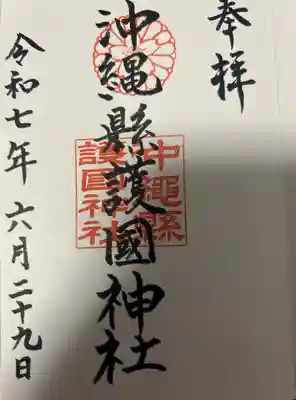 奉拝
沖縄縣護國神社
沖縄縣
護国神社
令和七年 六月二十九日